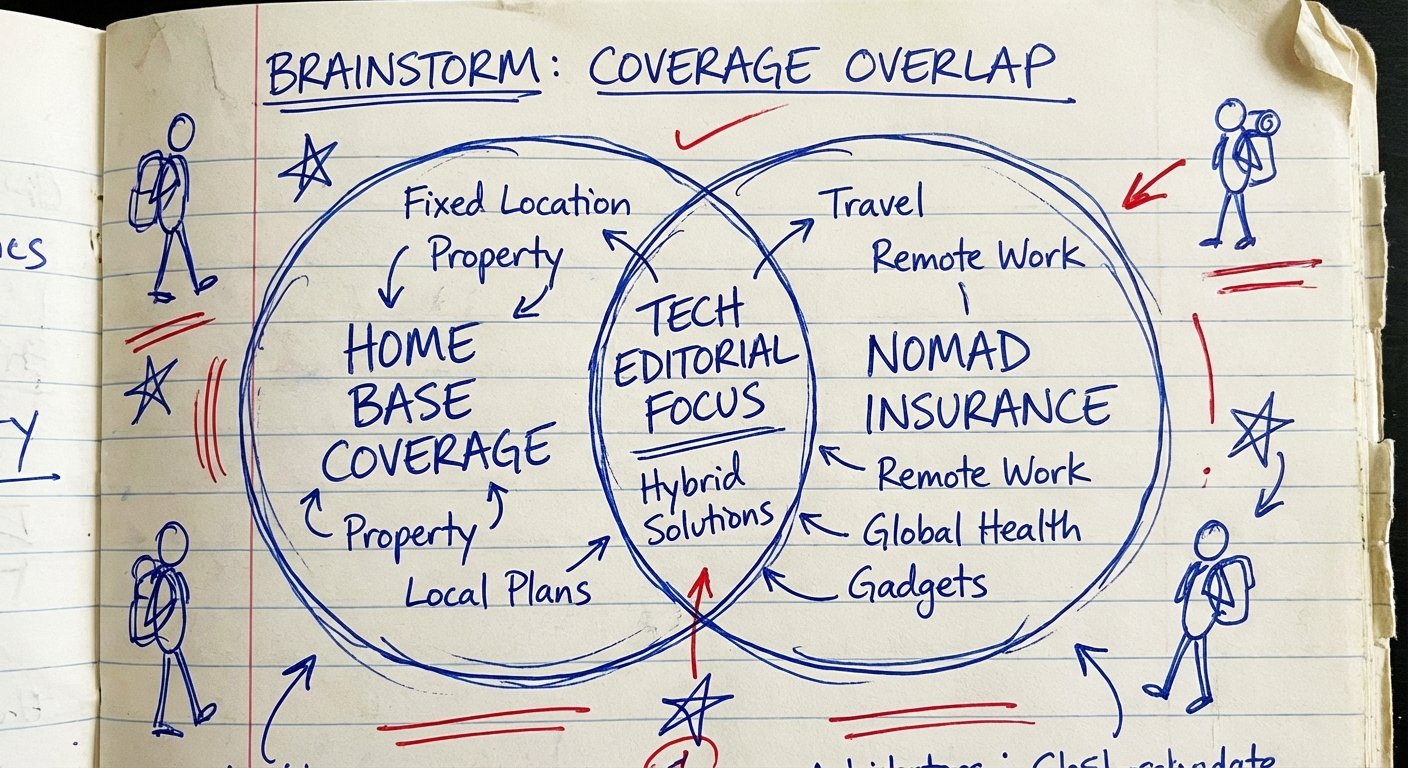 BRAINSTORM: COVERAGE OVERLAP
Fixed Location
Property
HOME
BASE
COVERAGE
Property
Local Plans
TECH
EDITORIAL
FOCUS
Hybrid
Solutions
Travel
Remote Work
NOMAD
INSURANCE
Remote Work
Global Health
Gadgets